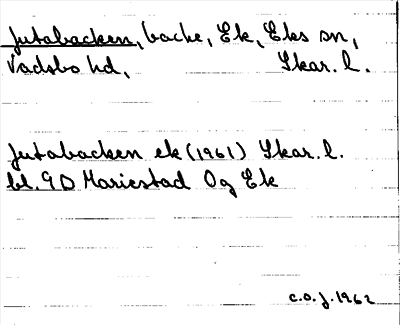 Jutabacken, backe, Ek, Eks sn,
Vadsbo hd, Skar. l.
Jutabacken ek (1961) Skar. l.
bl. 9D Mariestad Og Ek
c.o.j. 1962